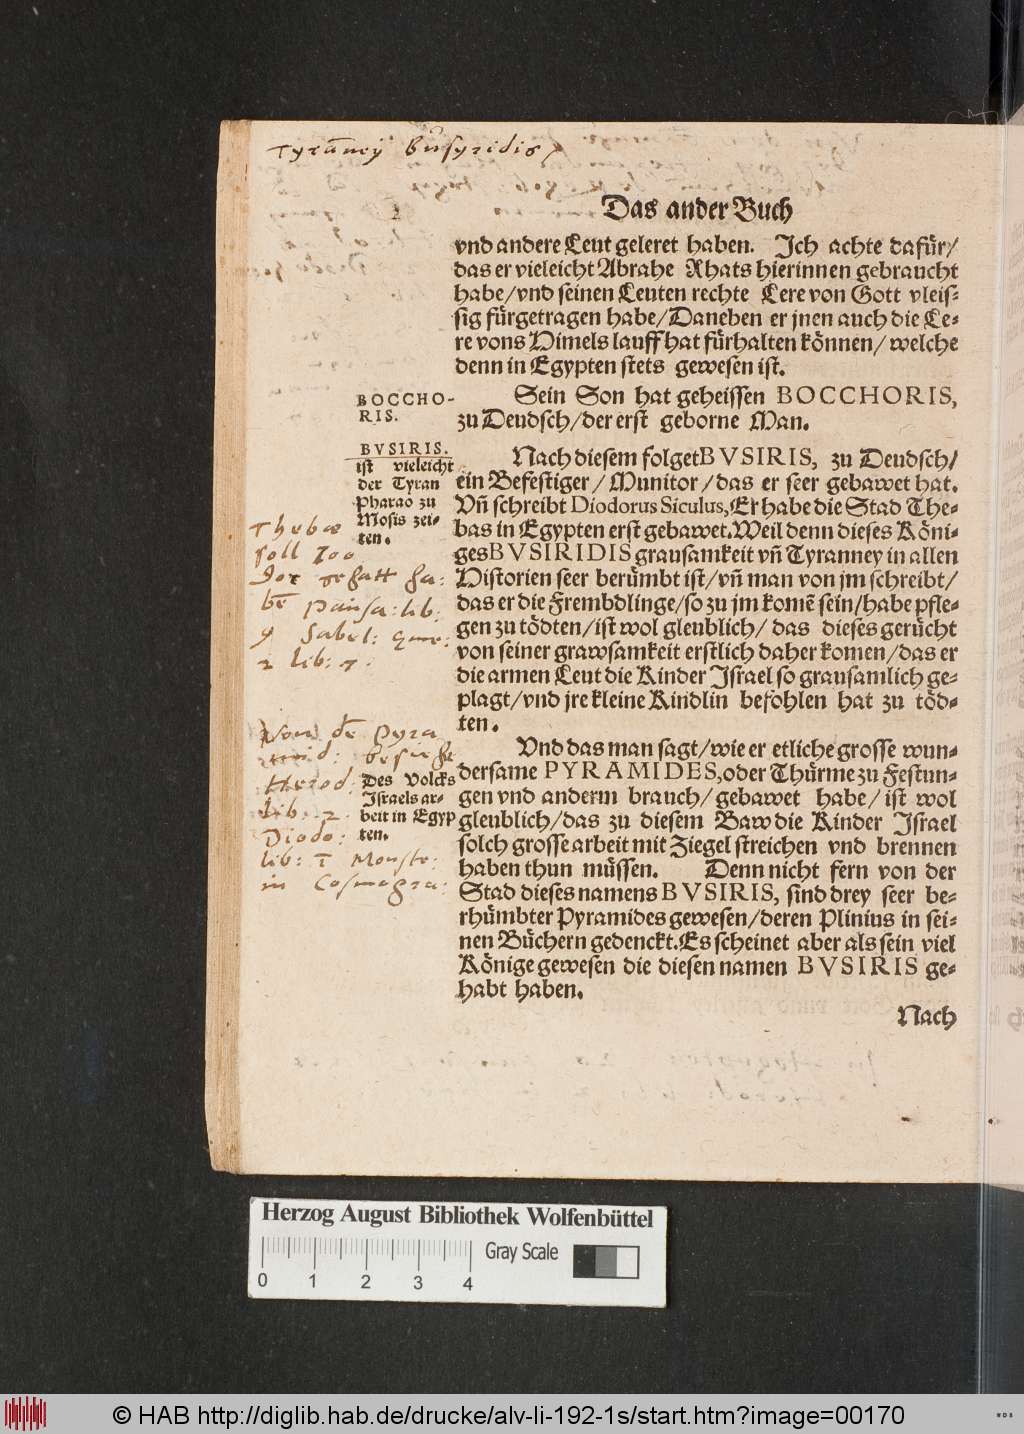 Tyrañey Busyridis
Das ander Buch
vnd andere Leut geleret haben. Ich achte dafür/
das er vieleicht Abrahe Rhats hierinnen gebraucht
habe/vnd seinen Leuten rechte Lere von Gott vleis-
sig fürgetragen habe/Daneben er jnen auch die Le-
re vons Himels lauff hat fürhalten können/welche
denn in Egypten stets gewesen ist.
BOCCHO-
RIS.
Sein Son hat geheissen BOCCHORIS,
zu Deudsch/der erst geborne Man.
BVSIRIS.
ist vieleicht
der Tyran
Pharao zu
Mosis zei-
ten.
Nach diesem folget BVSIRIS, zu Deudsch/
ein Befestiger/Munitor/das er seer gebawet hat.
Vñ schreibt Diodorus Siculus, Er habe die Stad The-
bas in Egypten erst gebawet. Weil denn dieses Köni-
ges BVSIRIDIS grausamkeit vñ Tyranney in allen
Historien seer berümbt ist/vñ man von jm schreibt/
das er die Frembdlinge/so zu jm komẽ sein/habe pfle-
gen zu tödten/ist wol gleublich/das dieses gerücht
von seiner grawsamkeit erstlich daher komen/das er
die armen Leut die Kinder Israel so grausamlich ge-
plagt/vnd jre kleine Kindlin befohlen hat zu töd-
ten.
Thebae
soll 100
Dor gehatt ha:
bẽ Pausa: lib:
9 Sabel:
2 lib: 7.
Von dẽ Pyra
mid: besiehe
Herod:
lib. 2.
Diodo:
lib: 1 Monste:
in Cosmogra:
Des Volcks
Israels ar-
beit in Egyp
ten.
Vnd das man sagt/wie er etliche grosse wun-
dersame PYRAMIDES, oder Thürme zu Festun-
gen vnd anderm brauch/gebawet habe/ist wol
gleublich/das zu diesem Baw die Kinder Israel
solch grosse arbeit mit Ziegel streichen vnd brennen
haben thun müssen. Denn nicht fern von der
Stad dieses namens BVSIRIS, sind drey seer be-
rhümbter Pyramides gewesen/deren Plinius in sei-
nen Büchern gedenckt. Es scheinet aber als sein viel
Könige gewesen die diesen namen BVSIRIS ge-
habt haben.
Nach
Herzog August Bibliothek Wolfenbüttel
Gray Scale
0 1 2 3 4
© HAB http://diglib.hab.de/drucke/alv-li-192-1s/start.htm?image=00170